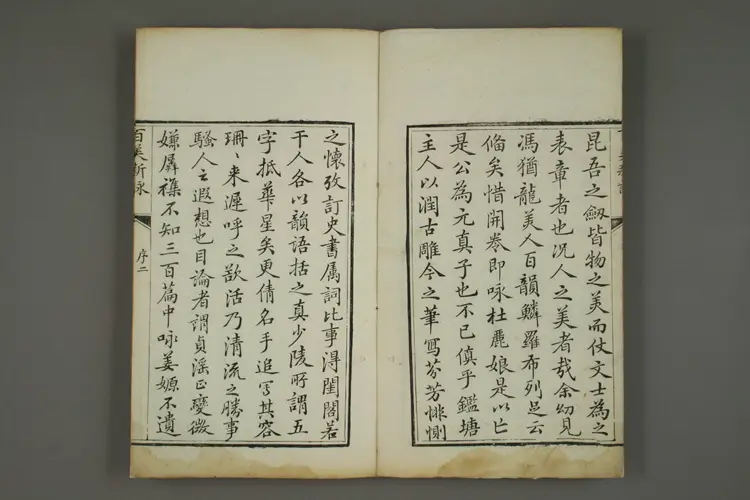 昆吾之劔皆物之美而仗文士為之
表章者也况人之美者哉余幼見
馮猶龍美人百韻鱗羅布列足云
俻矣惜開卷即咏杜麗娘是以亡
是公為元真子也不已傎乎鑑塘
主人以潤古雕今之筆寫芬芳悱惻
之懷攷訂史書属詞比事得閨閤若
干人各以韻語括之真少陵所謂五
字抵華星矣更倩名手追寫其容
珊〻来遲呼之欲活乃清流之勝事
騷人之遐想也目論者謂貞淫正變微
嫌羼襍不知三百篇中咏姜嫄不遺
百美新咏 序二